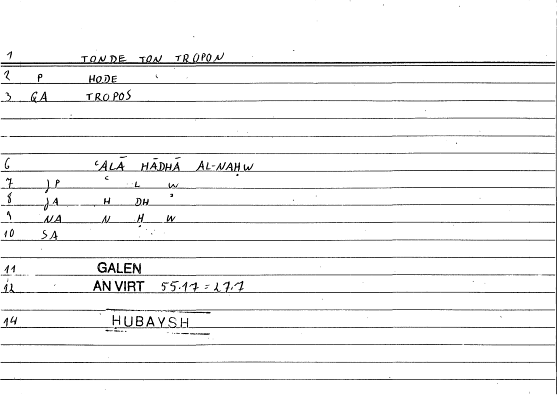 1 TONDE TON TROPON
2 P HODE
3 GA TROPOS
6 ʿALĀ HĀDHĀ AL-NAḤW
7 JP ʿ L W
8 JA H DH ʾ
9 NA N Ḥ W
10 SA
11 GALEN
12 AN VIRT 55.17 = 27.7
14 HUBAYSH